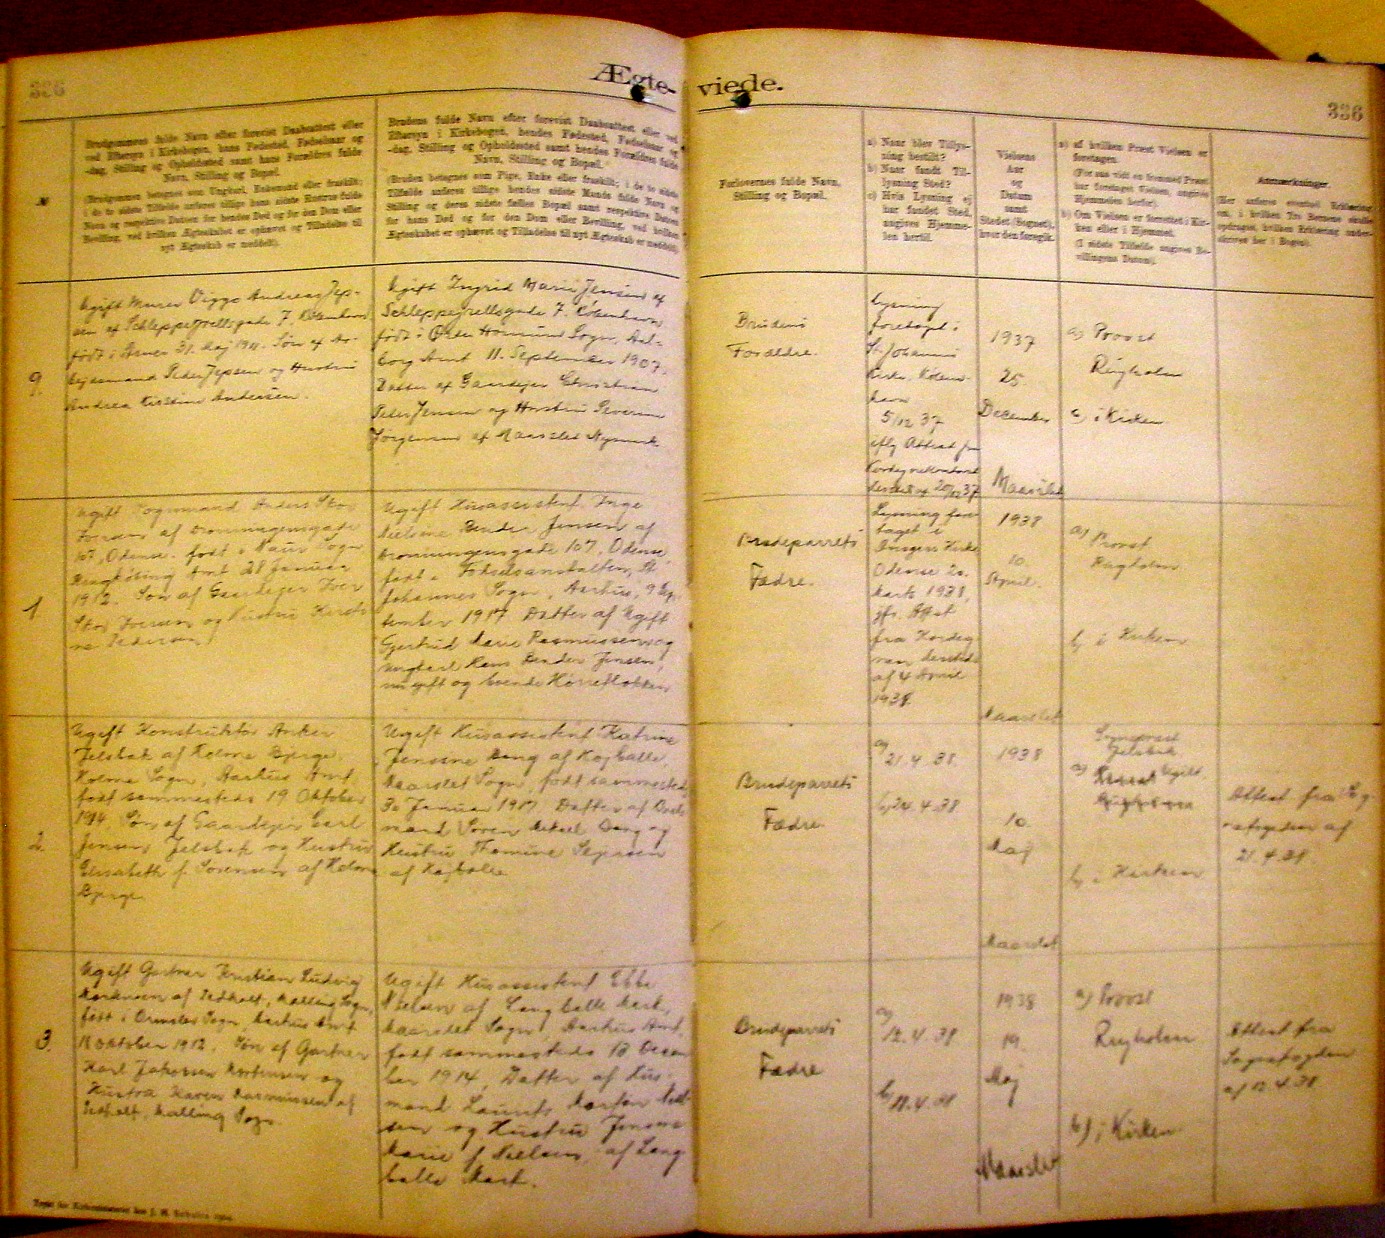 336
Ægte-
viede.
336
Brudgommens fulde Navn efter forevist Daabsattest eller
ved Eftersyn i Kirkebogen, hans Fødested, Fødselsaar og
-dag, Stilling og Opholdssted samt hans Forældres fulde
Navn, Stilling og Bopæl.
(Brudgommen betegnes som Ungkarl, Enkemand eller fraskilt;
i de to sidste Tilfælde anføres tillige hans sidste Hustrus fulde
Navn og respektive Datoen for hendes Død og for den Dom eller
Bevilling, ved hvilken Ægteskabet er ophævet og Tilladelse til
nyt Ægteskab er meddelt).
Brudens fulde Navn efter forevist Daabsattest eller ved
Eftersyn i Kirkebogen, hendes Fødested, Fødselsaar og
-dag, Stilling og Opholdssted samt hendes Forældres fulde
Navn, Stilling og Bopæl.
(Bruden betegnes som Pige, Enke eller fraskilt; i de to sidste
Tilfælde anføres tillige hendes sidste Mands fulde Navn og
Stilling og deres sidste fælles Bopæl samt respektive Datoen
for hans Død og for den Dom eller Bevilling, ved hvilken
Ægteskabet er ophævet og Tilladelse til nyt Ægteskab er meddelt).
Forlovernes fulde Navn,
Stilling og Bopæl.
a) Naar blev Tillys-
ning bestilt?
b) Naar fandt Til-
lysning Sted?
c) Hvis Lysning ej
har fundet Sted,
angives Hjemme-
len hertil.
Vielsens
Aar
og
Datum
samt
Stedet (Sognet),
hvor den foregik.
a) af hvilken Præst Vielsen er
foretagen.
(For saa vidt en fremmed Præst
har foretaget Vielsen, angives
Hjemmelen herfor).
b) Om Vielsen er forrettet i Kir-
ken eller i Hjemmet.
(I sidste Tilfælde angives Be-
villingens Datum).
Anmærkninger.
(Her anføres eventuel Erklæring
om, i hvilken Tro Børnene skulle
opdrages, hvilken Erklæring under-
skrives her i Bogen).
9.
Ugift Murer Viggo Andreas Jep-
sen af Schleppegrellsgade 7, København
født i Asnæs 31. Maj 1911. Søn af Ar-
bejdsmand Peder Jepsen og Hustru
Andrea Kirstine Andersen.
Ugift Ingrid Marie Jensen af
Schleppegrellsgade 7. København
født i Øster Hornum Sogn, Aal-
borg Amt 11. September 1907.
Datter af Gaardejer Christian
Peder Jensen og Hustru Severine
Jørgensen af Maarslet Nymark
Brudens
Forældre.
Lysning
foretaget i
St. Johannes
Kirke, Køben-
havn
5/12 37
iflg Attest fra
Kordegnekontoret
dersted af 20/12 37
1937
25.
December
Maarslet
a) Provst
Ringholm
b) i Kirken.
1
Ugift Fogumand Anders Skov
Iversen af Dronningensgade
107, Odense. født i Naur Sogn
Ringkøbing Amt 28 Januar
1912. Søn af Gaardejer Iver
Skov Iversen og Hustru Kirsti-
ne Pedersen.
Ugift Husassistent Inge
Nielsine Bender Jensen af
Dronningensgade 107, Odense
født i Fødselsanstalten, St.
Johannes Sogn, Aarhus, 9 Sep-
tember 1917. Datter af Ugift
Gjertrud Marie Rasmussen og
Ungkarl Hans Bender Jensen,
nu gift og boende Hørretløkken
Brudeparrets
Fædre.
Lysning fore-
taget i
Ansgars Kirke
Odense 20.
Marts 1938,
jfr. Attest
fra Kordeg-
nen dersteds
af 4 April
1938.
1938
10.
April.
Maarslet
a) Provst
Ringholm
b) i Kirken
2.
Ugift Konstruktør Anker
Jelsbak af Holme Bjerge.
Holme Sogn, Aarhus Amt,
født sammesteds 19 Oktober
1914, Søn af Gaardejer Carl
Jensen Jelsbak og Hustru
Elisabeth f. Sørensen af Holme
Bjerge
Ugift Husassistent Katrine
Jensine Bang af Højballe,
Maarslet Sogn, født sammesteds
30 Januar 1917. Datter af Boels-
mand Søren Mikael Bang og
Hustru Thomine Sejersen
af Højballe
Brudeparrets
Fædre.
a) 21. 4. 38.
b) 24. 4. 38
1938
10.
Maj
Maarslet
Sognepræst
Jelsbak
a) Provst
Ringholm
b) i Kirken
Attest fra Sog-
nefogden af
21. 4. 38.
3.
Ugift Gartner Kristian Ludvig
Mortensen af Pedholt, Malling Sogn,
født i Ormslev Sogn, Aarhus Amt
18 Oktober 1912. Søn af Gartner
Karl Jakobsen Mortensen og
Hustru Karen Rasmussen af
Pedholt, Malling Sogn.
Ugift Husassistent Ebba
Nielsen af Langballe Mark,
Maarslet Sogn, Aarhus Amt,
født sammesteds 13 Decem-
ber 1914, Datter af Hus-
mand Laurits Morten Niel-
sen og Hustru Jensine
Marie f. Nielsen, af Lang-
balle Mark.
Brudeparrets
Fædre
a) 12. 4. 38
1938
19.
Maj
Maarslet
a) Provst
Ringholm
b) i Kirken
Attest fra
Sognefogden
af 12 4. 38